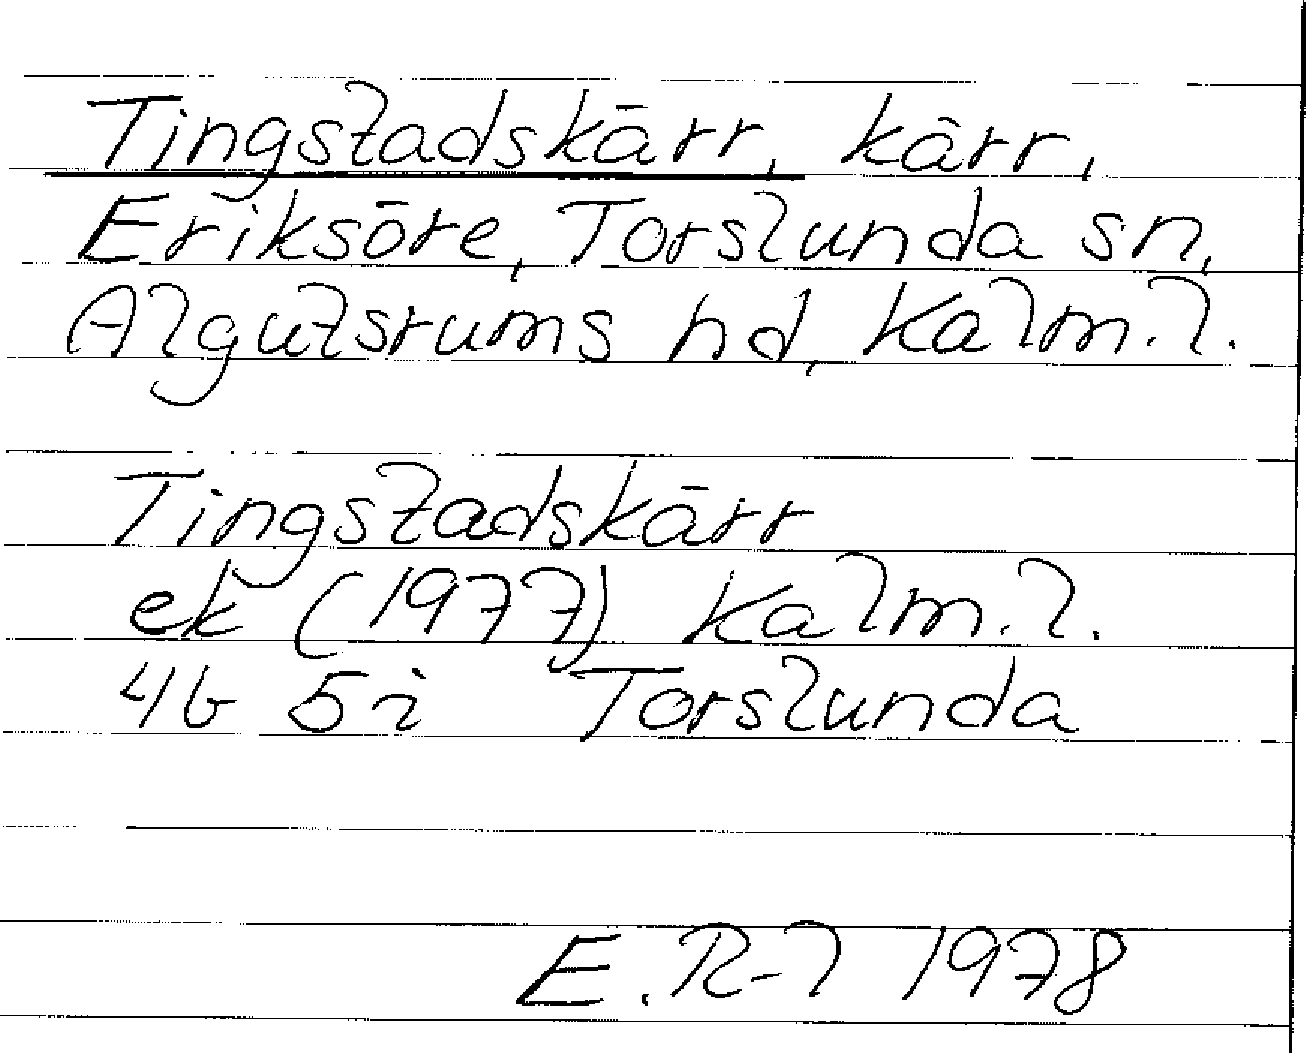 Tingstadskärr, kärr,
Eriksöre, Torslunda sn,
Algutsrums hd, Kalm.l.
Tingstadskärr
ek (1977) Kalm.l.
4G 5i Torslunda
E.R-l 1978